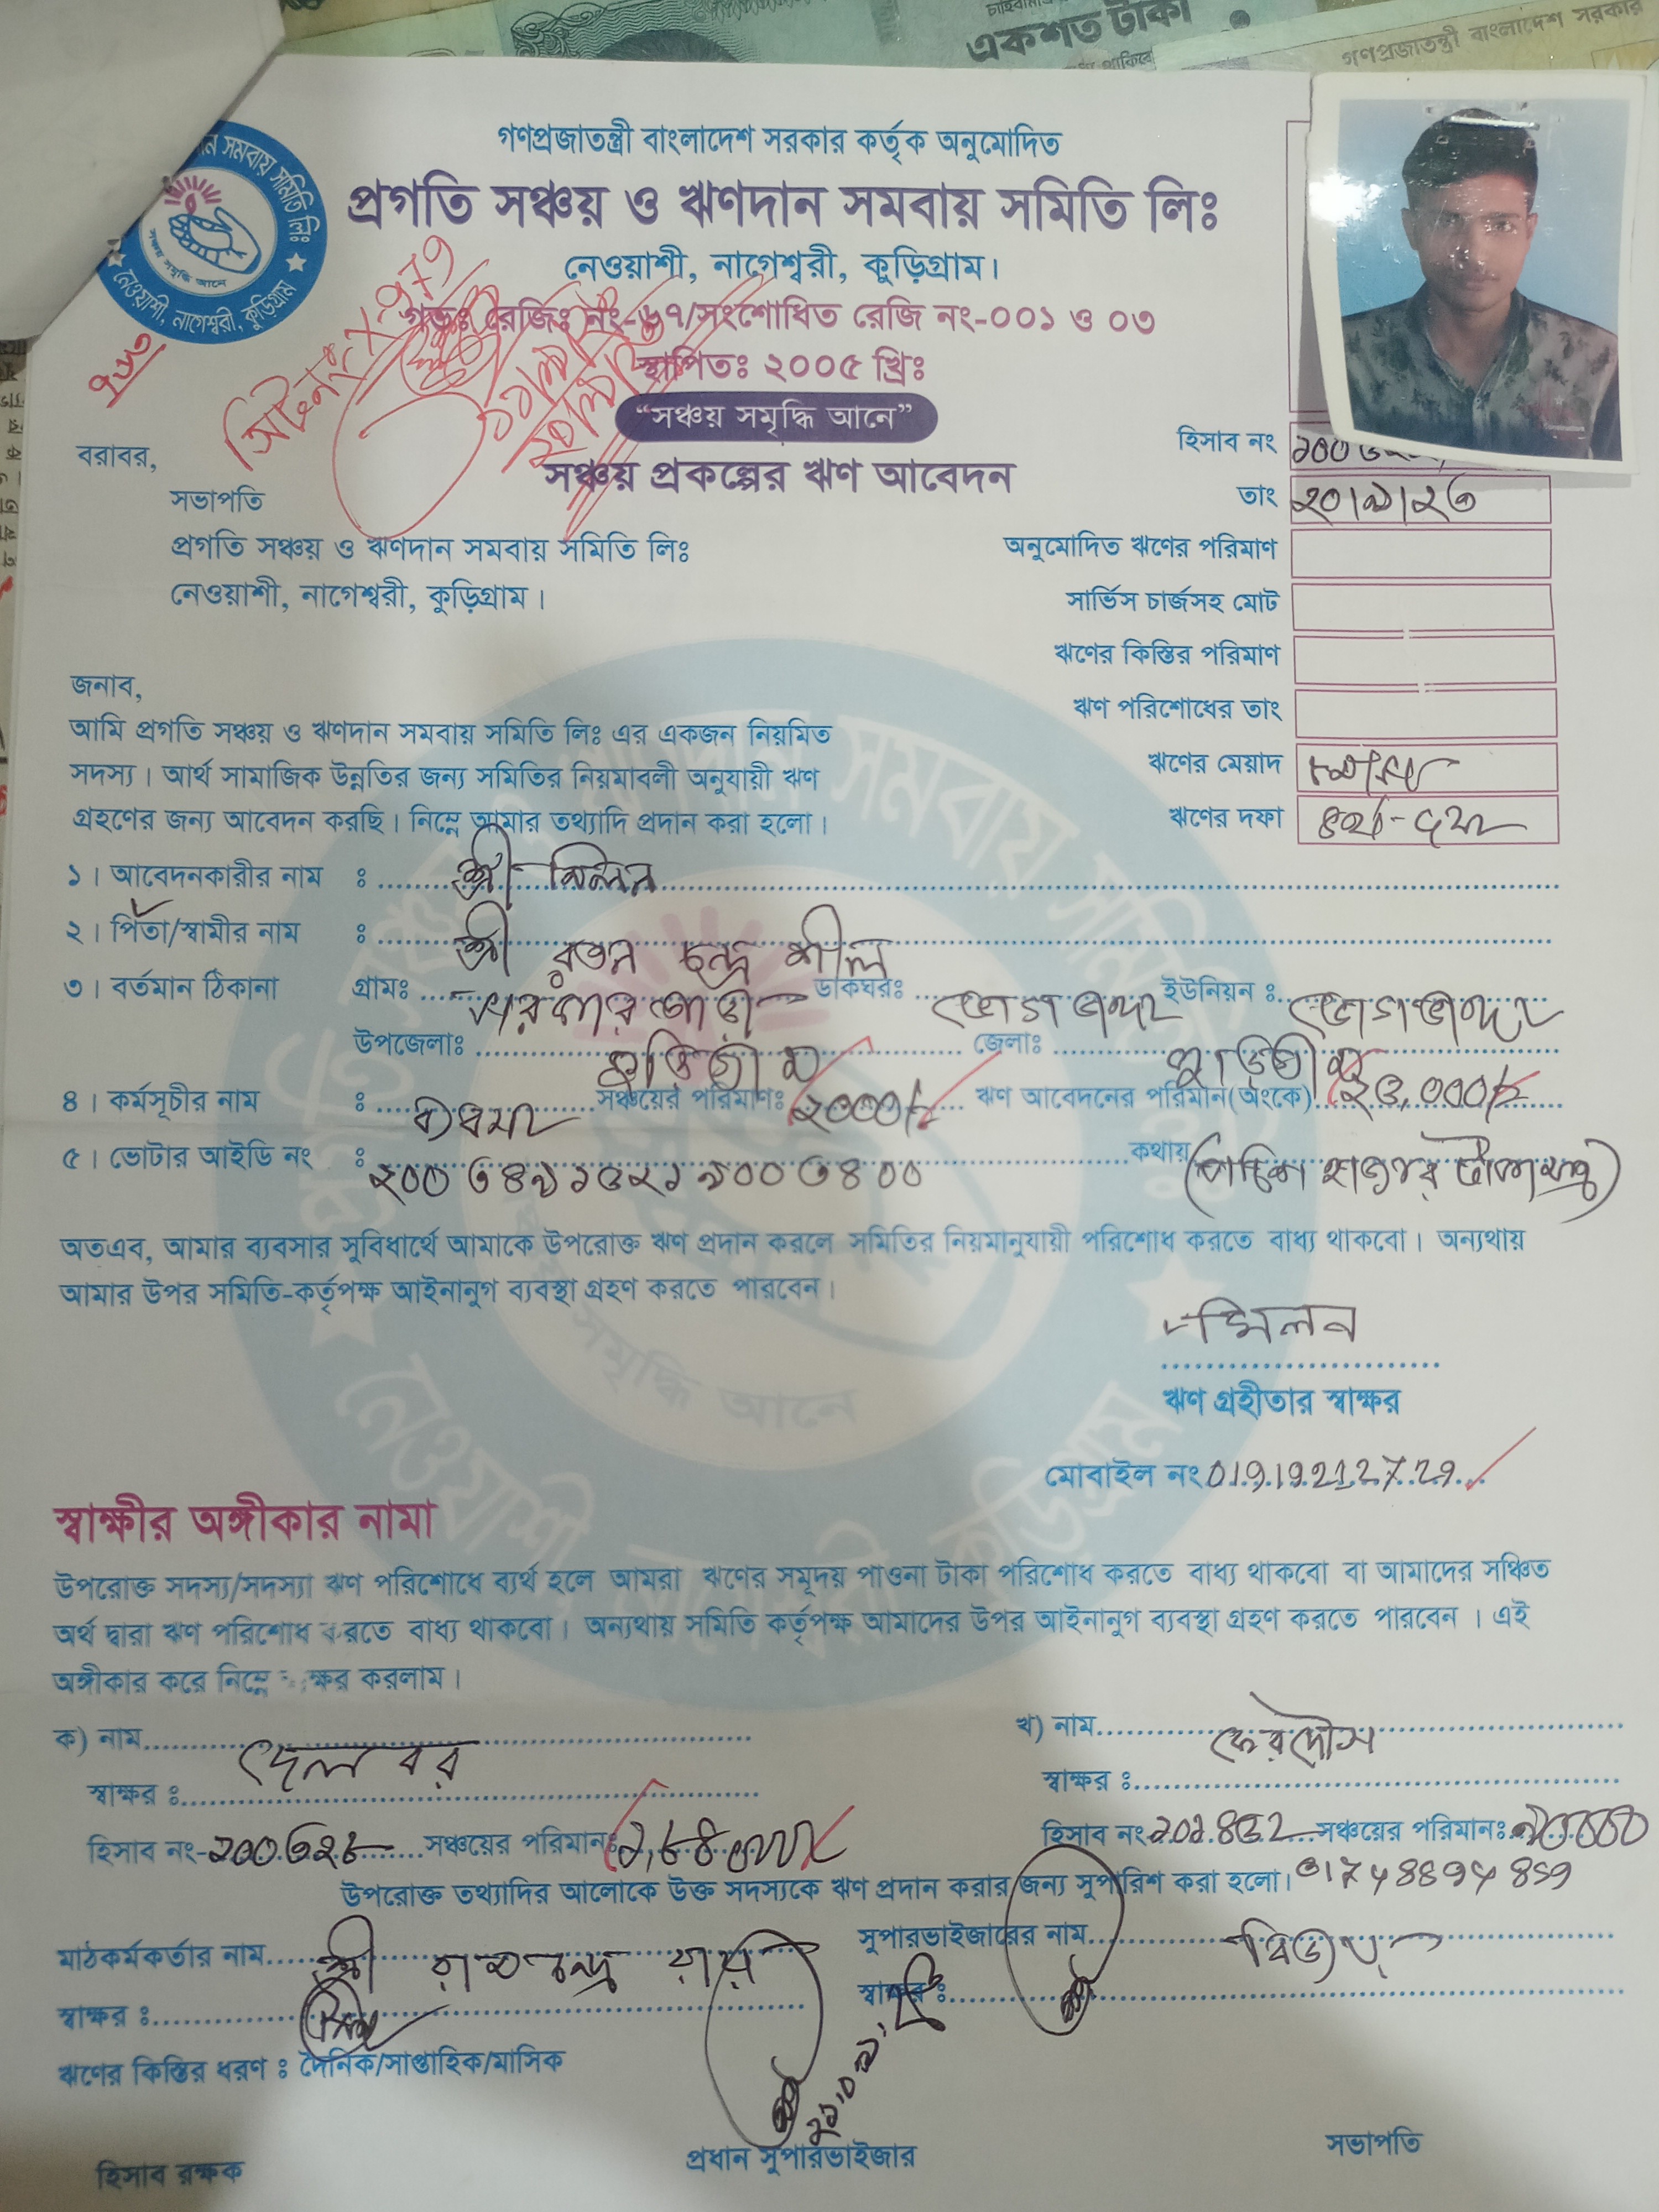 একশত টাকা
গণপ্রজাতন্ত্রী বাংলাদেশ সরকার
গণপ্রজাতন্ত্রী বাংলাদেশ সরকার কর্তৃক অনুমোদিত
প্রগতি সঞ্চয় ও ঋণদান সমবায় সমিতি লিঃ
নেওয়াশী, নাগেশ্বরী, কুড়িগ্রাম।
গভঃ রেজিঃ নং-৬৭/সংশোধিত রেজি নং-০০১ ও ০৩
স্থাপিতঃ ২০০৫ খ্রিঃ
“সঞ্চয় সমৃদ্ধি আনে”
সঞ্চয় প্রকল্পের ঋণ আবেদন
হিসাব নং
তাং ২০/৯/২৩
অনুমোদিত ঋণের পরিমাণ
সার্ভিস চার্জসহ মোট
ঋণের কিস্তির পরিমাণ
ঋণ পরিশোধের তাং
ঋণের মেয়াদ
ঋণের দফা ৪র্থ-দফা
বরাবর,
সভাপতি
প্রগতি সঞ্চয় ও ঋণদান সমবায় সমিতি লিঃ
নেওয়াশী, নাগেশ্বরী, কুড়িগ্রাম।
জনাব,
আমি প্রগতি সঞ্চয় ও ঋণদান সমবায় সমিতি লিঃ এর একজন নিয়মিত
সদস্য। আর্থ সামাজিক উন্নতির জন্য সমিতির নিয়মাবলী অনুযায়ী ঋণ
গ্রহণের জন্য আবেদন করছি। নিম্নে আমার তথ্যাদি প্রদান করা হলো।
১। আবেদনকারীর নাম ঃ শ্রী মিলন
২। পিতা/স্বামীর নাম ঃ শ্রী রতন চন্দ্র শীল
৩। বর্তমান ঠিকানা গ্রামঃ ডাকঘরঃ ভোগডাঙ্গা ইউনিয়ন ঃ ভোগডাঙ্গা
উপজেলাঃ কুড়িগ্রাম জেলাঃ কুড়িগ্রাম
৪। কর্মসূচীর নাম ঃ ব্যবসা সঞ্চয়ের পরিমাণঃ ২০০০/= ঋণ আবেদনের পরিমান(অংকে) ২৫,০০০/=
৫। ভোটার আইডি নং ঃ ২০০৩৪৯১৫২১৯০০৩৪০০ কথায় (পঁচিশ হাজার টাকা মাত্র)
অতএব, আমার ব্যবসার সুবিধার্থে আমাকে উপরোক্ত ঋণ প্রদান করলে সমিতির নিয়মানুযায়ী পরিশোধ করতে বাধ্য থাকবো। অন্যথায়
আমার উপর সমিতি-কর্তৃপক্ষ আইনানুগ ব্যবস্থা গ্রহণ করতে পারবেন।
মিলন
ঋণ গ্রহীতার স্বাক্ষর
মোবাইল নং 01919212729
স্বাক্ষীর অঙ্গীকার নামা
উপরোক্ত সদস্য/সদস্যা ঋণ পরিশোধে ব্যর্থ হলে আমরা ঋণের সমূদয় পাওনা টাকা পরিশোধ করতে বাধ্য থাকবো বা আমাদের সঞ্চিত
অর্থ দ্বারা ঋণ পরিশোধ করতে বাধ্য থাকবো। অন্যথায় সমিতি কর্তৃপক্ষ আমাদের উপর আইনানুগ ব্যবস্থা গ্রহণ করতে পারবেন। এই
অঙ্গীকার করে নিম্নে স্বাক্ষর করলাম।
ক) নাম দেলবর
স্বাক্ষর ঃ
হিসাব নং- ২০০৩২৮ সঞ্চয়ের পরিমানঃ
খ) নাম ফেরদৌস
স্বাক্ষর ঃ
হিসাব নং সঞ্চয়ের পরিমানঃ
উপরোক্ত তথ্যাদির আলোকে উক্ত সদস্যকে ঋণ প্রদান করার জন্য সুপারিশ করা হলো।
মাঠকর্মকর্তার নাম শ্রী
সুপারভাইজারের নাম
স্বাক্ষর ঃ
স্বাক্ষর ঃ
ঋণের কিস্তির ধরণ ঃ দৈনিক/সাপ্তাহিক/মাসিক
হিসাব রক্ষক
প্রধান সুপারভাইজার
সভাপতি